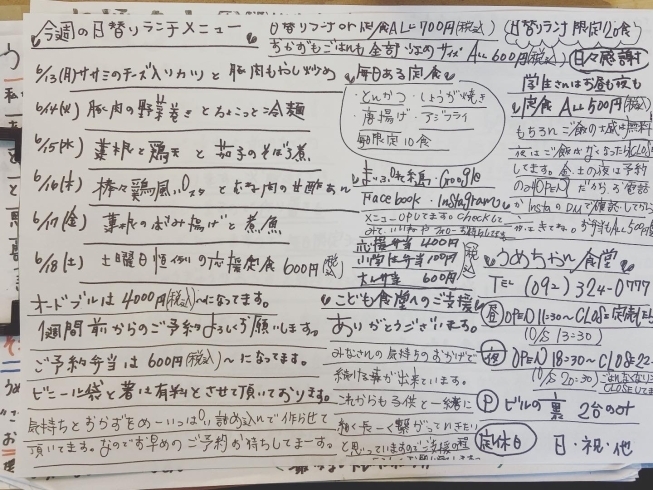 今週の日替りランチメニュー
6/13(月)ササミのチーズ入りカツと豚肉もやし炒め
6/14(火)豚肉の野菜巻きとちょこっと冷麺
6/15(水)蓮根と鶏天と茄子のそぼろ煮
6/16(木)棒々鶏風パスタとむね肉の甘酢あん
6/17(金)蓮根のはさみ揚げと煮魚
6/18(土)土曜日恒例の応援定食600円(税込)
オードブルは4000円(税込)〜になってます。
1週間前からのご予約よろしくお願いします。
ご予約弁当は600円(税込)〜になってます。
ビニール袋と箸は有料とさせて頂いております。
気持ちとおかずをめーいっぱい詰め込んで作らせて
頂いてます。なのでお早めのご予約お待ちしてまーす。
日替りランチor定食ALL700円(税込)
おかずもごはんも全部 サイズALL600円(税込)
毎日ある定食
・とんかつ・しょうが焼き
・唐揚げ・アジフライ
毎日限定10食
・Google
Facebook・Instagram
メニューUPしてます。Checkして
応援弁当400円
小学生弁当100円
600円
(税込)
こども食堂へのご支援
ありがとうございます。
みなさんの気持ちのおかげで
続ける事が出来ています。
これからも子供と一緒に
細く長ーく繋がっていきたい
と思っていますのでご支援の程
日替りランチ限定120食
日々感謝
学生さんはお昼も夜も
定食ALL500円(税込)
もちろんご飯の大盛は無料
夜はご飯がなくなったらCLOSE
してます。金土の夜は予約
のみOPEN だからお電話
かInstaのDMで確認してから
うめちゃん食堂
TEL (092) 324-0777
昼 OPEN 11:30〜CLOSE定食
(O/S 13:30)
夜 OPEN 18:30〜CLOSE22
(O/S 20:30)
P ビルの裏 2台のみ
定休日 日・祝・他